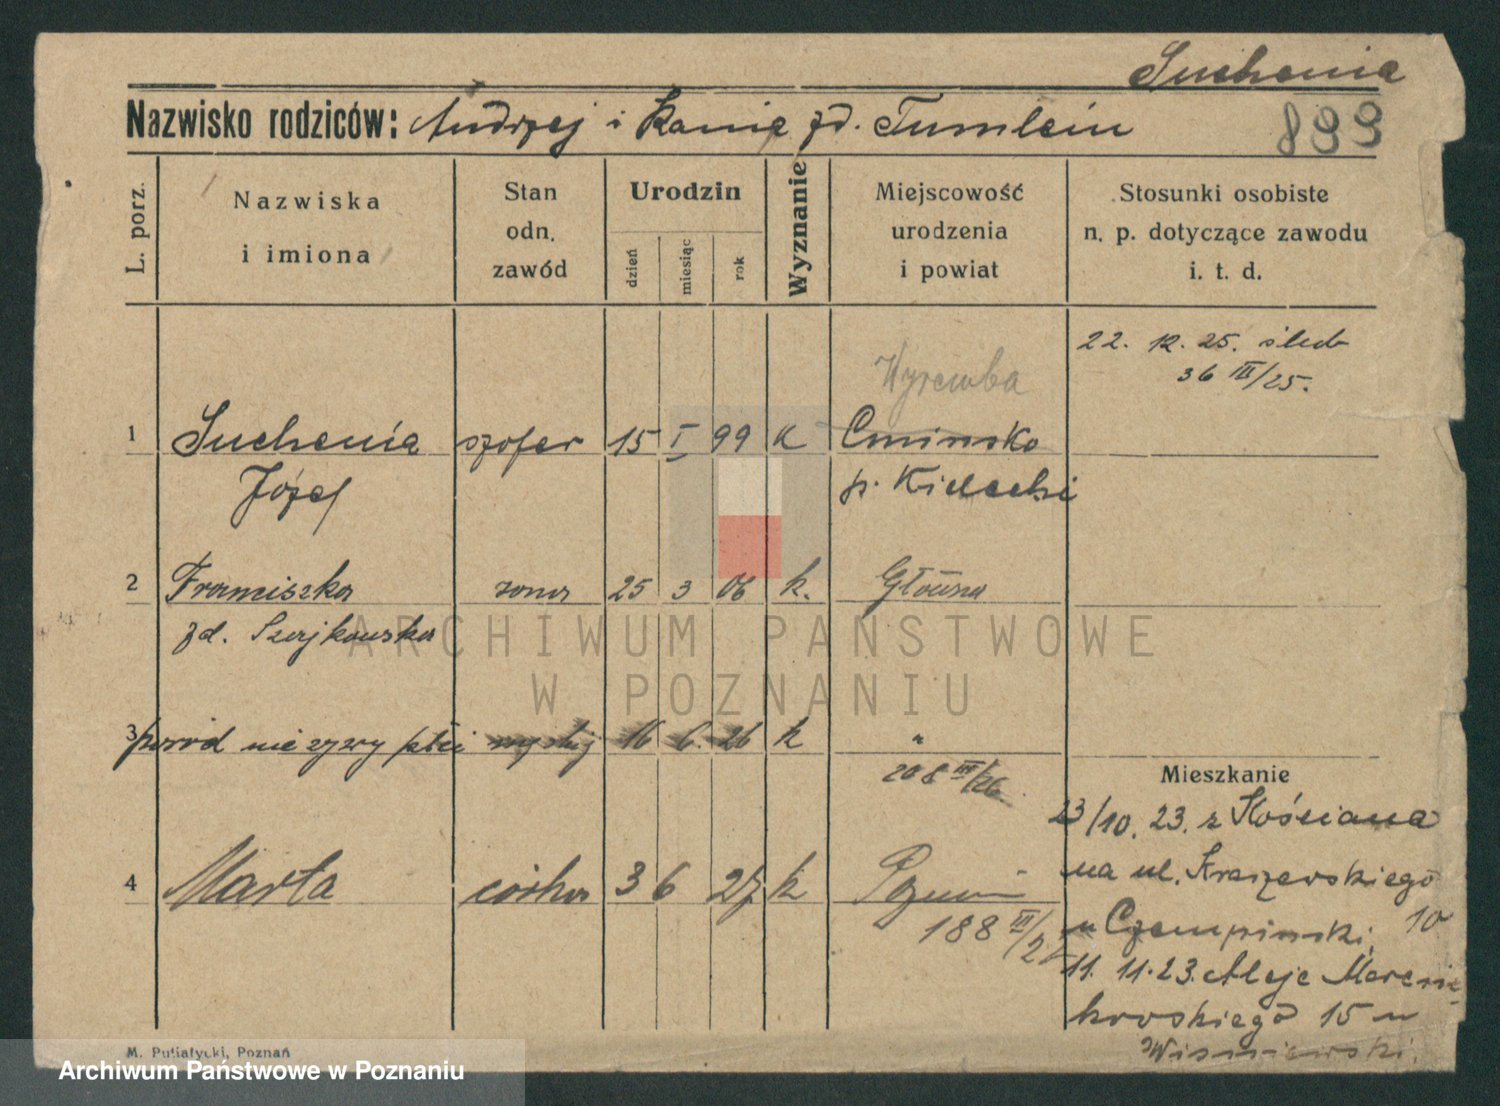 Suchenia
Nazwisko rodziców: Andrzej i Kania zd. Tumlein
899
L. porz.
Nazwiska i imiona
Stan odn. zawód
Urodzin
dzień
miesiąc
rok
Wyznanie
Miejscowość urodzenia i powiat
Stosunki osobiste n. p. dotyczące zawodu i. t. d.
22. 12. 25. ślub
36 III/25.
1 Suchenia szofer 15 I 99 k Cmińsko
Józef p. Kielecki
2 Franciszka żona 25 3 06 k. Główna
zd. Szajkowska
ARCHIWUM PAŃSTWOWE
W POZNANIU
3 poród nieżywy płci męskiej 16 6. 26 k "
208 III/26.
Mieszkanie
23/10. 23. z Kościana
4 Marta córka 3 6 27 k Poznań
188 III/27
na ul. Kraszewskiego
u Czempiński, 10
11. 11. 23. Aleje Marcin
kowskiego 15 u
Wiśniewski.
M. Putiatycki, Poznań
Archiwum Państwowe w Poznaniu